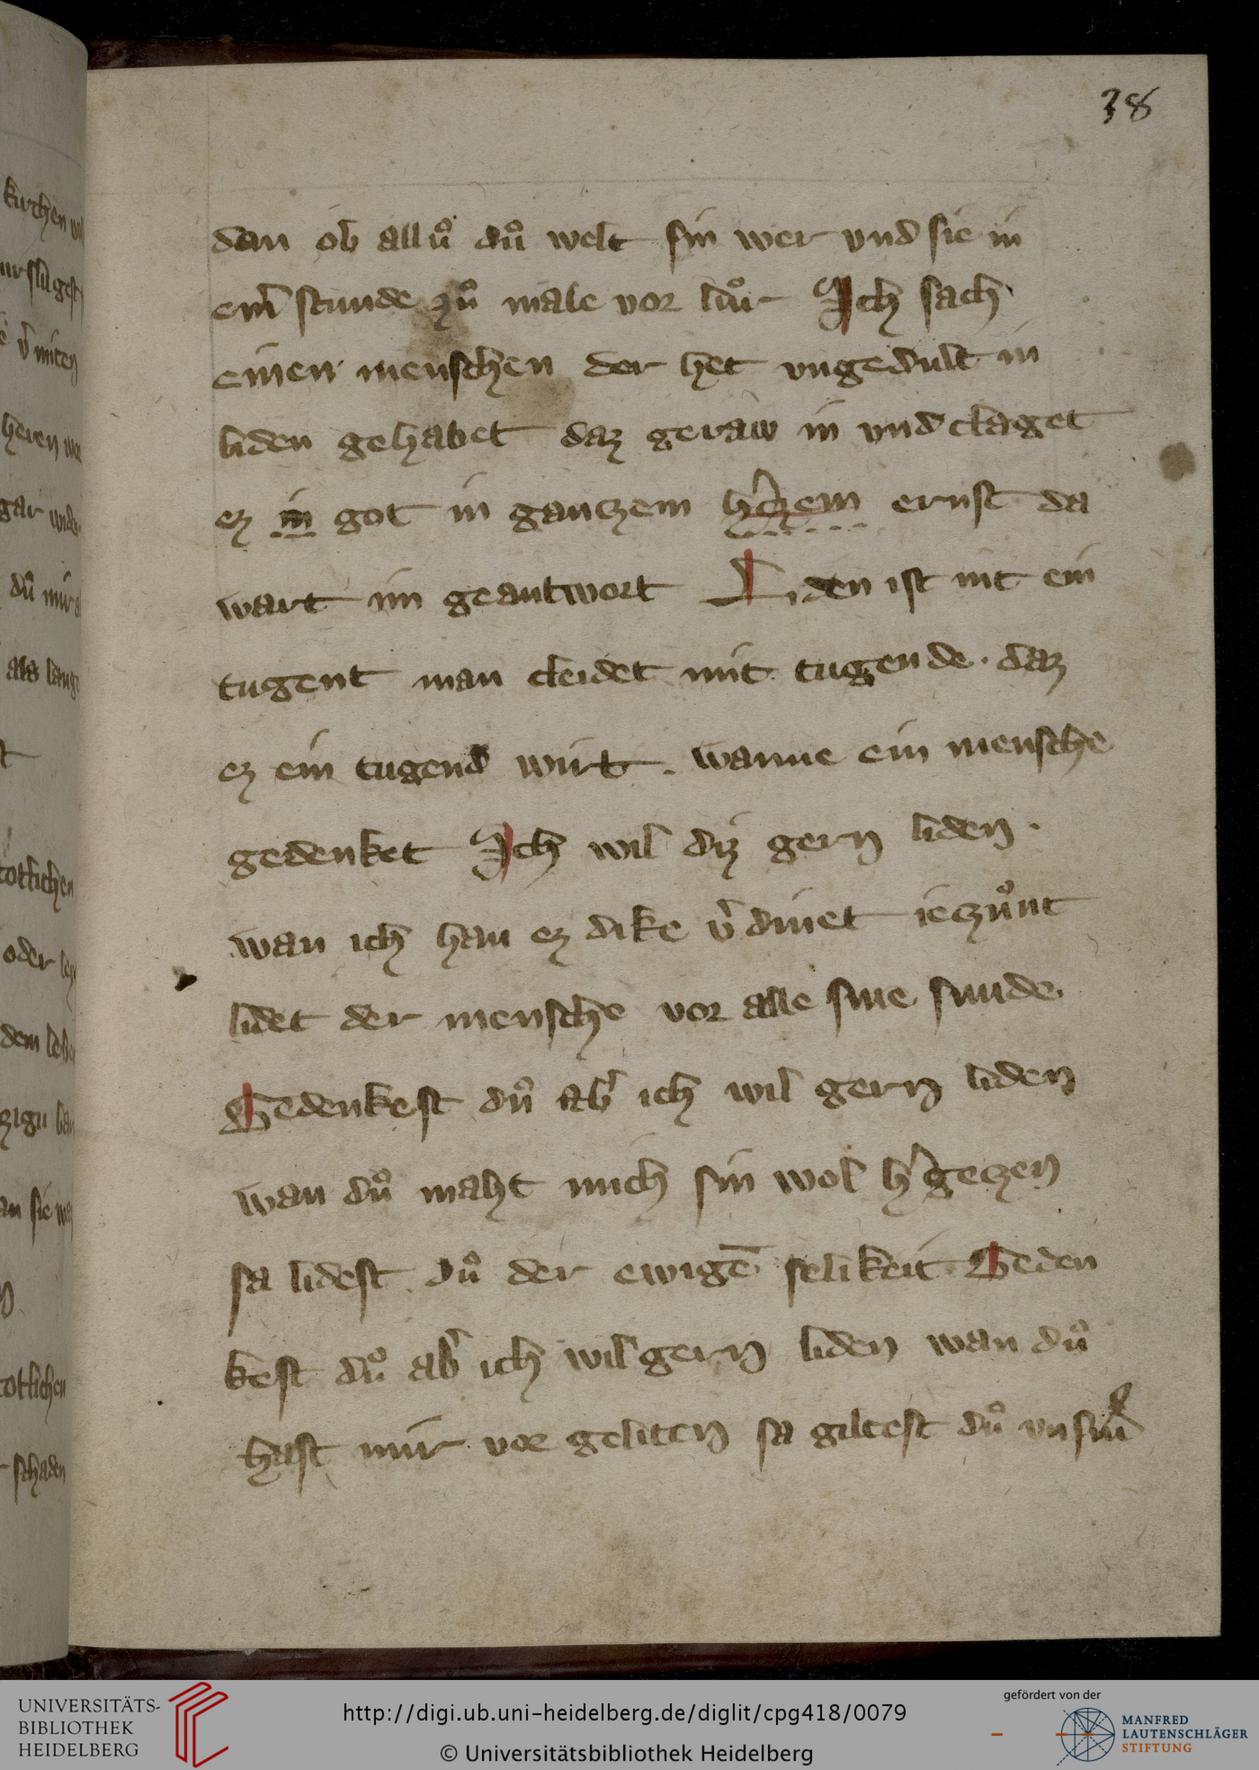 38
dan ob allu̓ du̓ welt sin wer vnd sie in
em̄ stunde zu̓ male vor lůr Ich sach
einen menschen der het vngedult in
liden gehabet daz geraw in vnd claget
ez in got in ganczem h̓czem ernst da
wart im geantwort Liden ist nit ein
tugent man cleidet mit tugende · daz
ez ein tugend wirt . wanne ein mensche
gedenket Ich wil diz gern liden ·
wan ich han ez dike v̓dinet ieczůnt
lidet der mensche vor alle sine sunde.
Gedenkest dů ab̓ ich wil gern liden
wan dů maht mich sin wol h̓geczen
sa lidest dů der ewigē selikeit Geden
kest dů ab̓ ich wil gern liden wan dů
hast mir vor geliten sa giltest dů vnsm̄
kirchen
gar
dů mir
als lang
totlichen
oder
dem
totlichen
schaden
UNIVERSITÄTS-
BIBLIOTHEK
HEIDELBERG
http://digi.ub.uni-heidelberg.de/diglit/cpg418/0079
© Universitätsbibliothek Heidelberg
gefördert von der
MANFRED
LAUTENSCHLÄGER
STIFTUNG